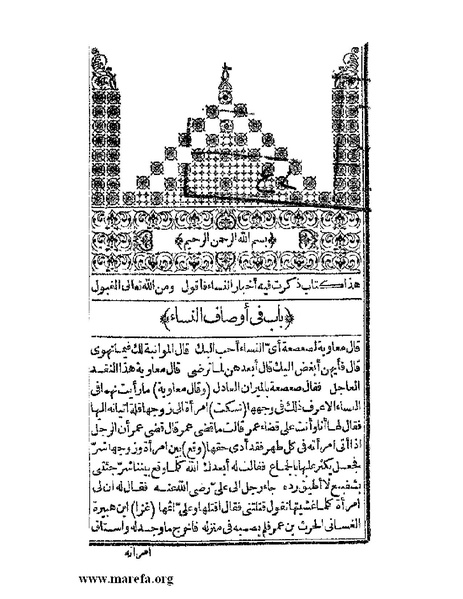 ﴿بسم الله الرحمن الرحيم﴾
هذا كتاب ذكرت فيه أخبار النساء فأقول ومن الله تعالى القبول
﴿باب فى أوصاف النساء﴾
قال معاوية لصعصعة أىّ النساء أحب اليك قال المواتية لك فيما تهوى
قال فأيهن أبغض اليك قال أبعدهن لما ترضى قال معاوية هذا النقد
العاجل فقال صعصعة بالميزان العادل (وقال معاوية) ما رأيت نهما فى
النساء الا عرف ذلك فى وجهها (شكت) امرأة الى زوجها قلة اتيانه اليها
فقال لها أنا وأنت على قضاء عمر قالت ما قضى عمر قال قضى عمر أن الرجل
اذا أتى امرأته فى كل طهر فقد أدى حقها (وقع) بين امرأة وزوجها شر
فجعل يكثر عليها بالجماع فقالت له أبعدك الله كلما وقع بيننا شر جئتنى
بشفيع لا أطيق رده جاء رجل الى على رضى الله عنه فقال له ان لى
امرأة كلما غشيتها تقول قتلتنى فقال اقتلها وعلىّ اثمها (غزا) ابن هبيرة
الغسانى الحرث بن عمر فلم يصبه فى منزله فأخرج ما وجد له واستاق
امرأته
www.marefa.org